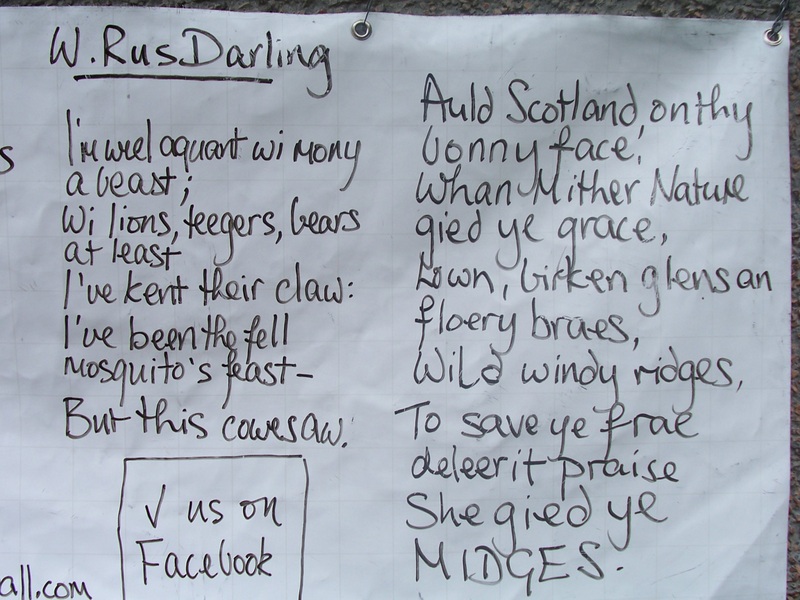 W. Rus Darling
s
I'm weel aquant wi mony
a beast;
Wi lions, teegers, bears
at least
I've kent their claw:
I've been the fell
Mosquito's feast–
But this cowes aw.
✓ us on
Facebook
all.com
Auld Scotland, on thy
bonny face,
Whan Mither Nature
gied ye grace,
Lown, birken glens an
floery braes,
Wild windy ridges,
To save ye frae
deleerit praise
She gied ye
MIDGES.